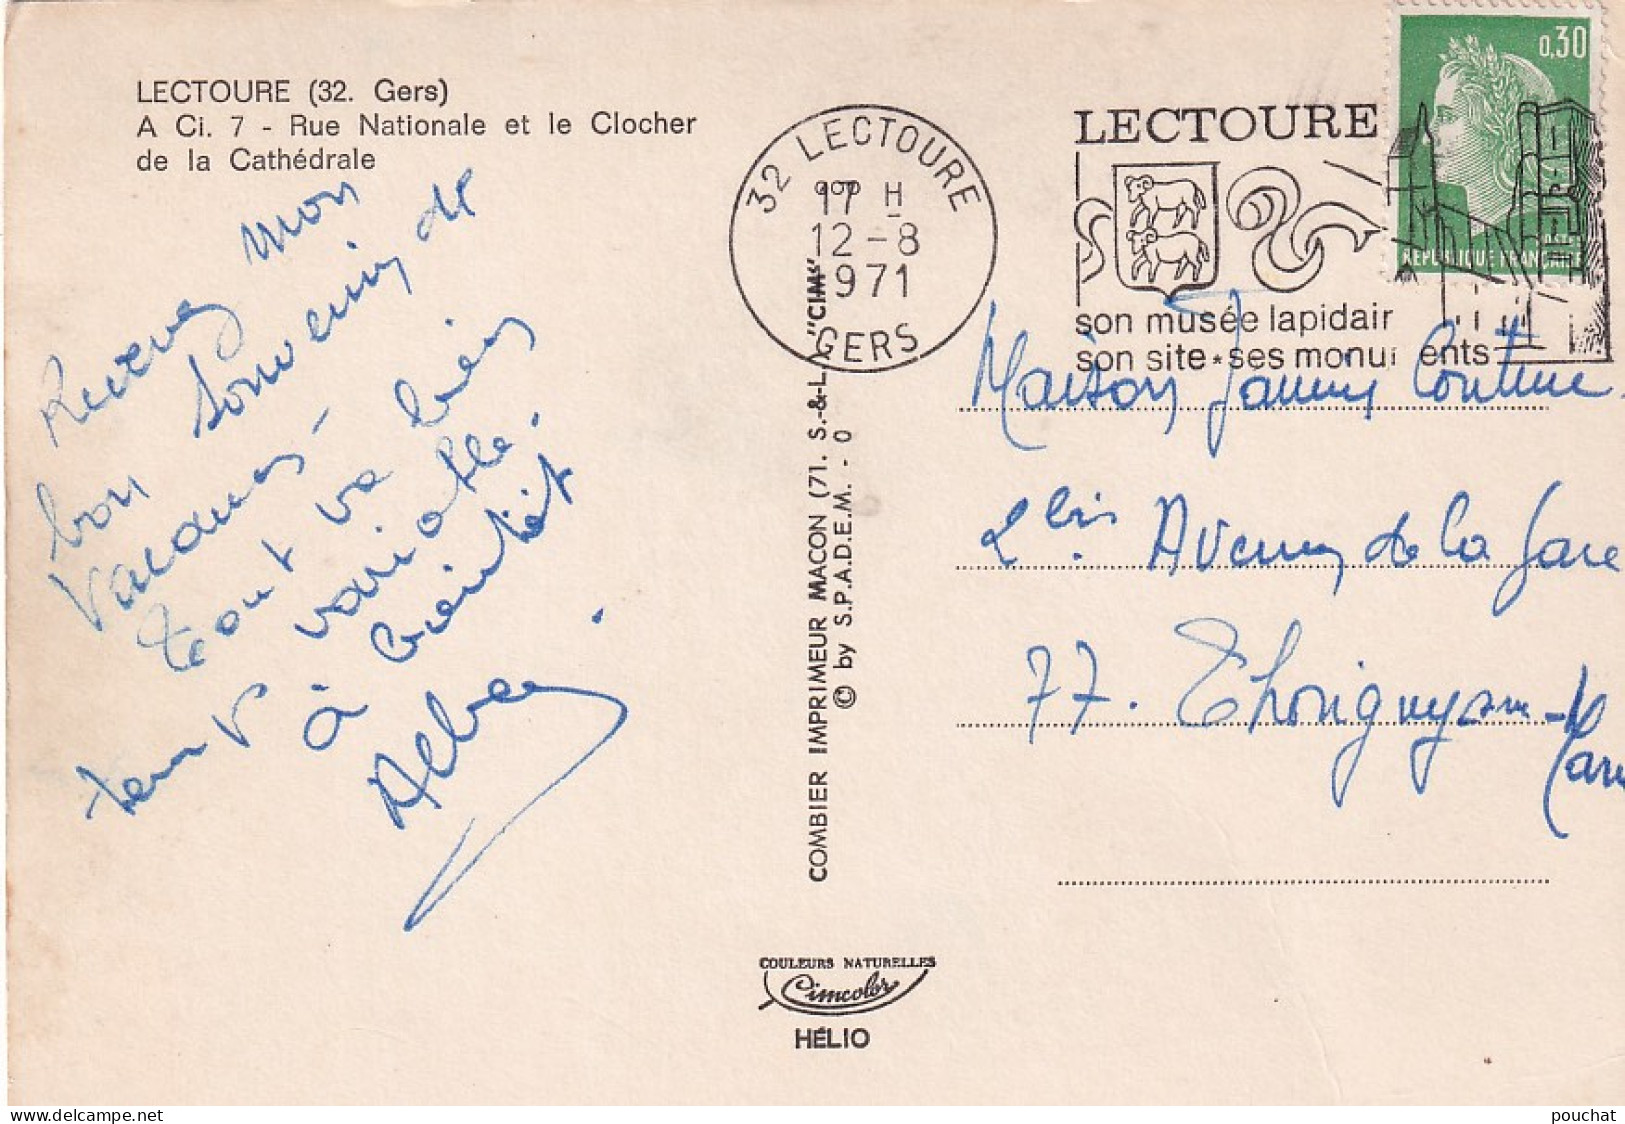 LECTOURE (32. Gers)
A Ci. 7 - Rue Nationale et le Clocher
de la Cathédrale
Recevez mon
bon souvenir de
vacances -
tout va bien
temps variable.
à bientôt
32 LECTOURE
17 H
12-8
1971
GERS
LECTOURE
son musée lapidair
son site*ses monu ents
0,30
POSTES
REPUBLIQUE FRANÇAISE
Maison Couture
2 bis Avenue de la Gare
77. Thorigny sur-
Marn
COMBIER IMPRIMEUR MACON (71. S.-&-L.) "CIM"
© by S.P.A.D.E.M. - 0
COULEURS NATURELLES
Cimcolor
HÉLIO
delcampe.net
pouchat